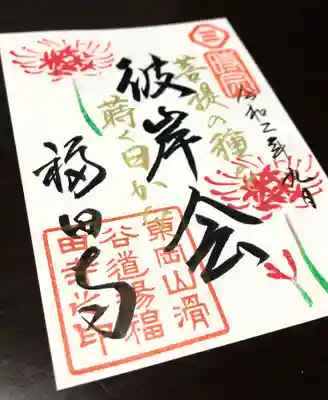 三
時宗
令和二年九月
菩提の種を
蒔く日かな
彼岸会
福田寺
東岡山滑
谷道場福
田寺
印